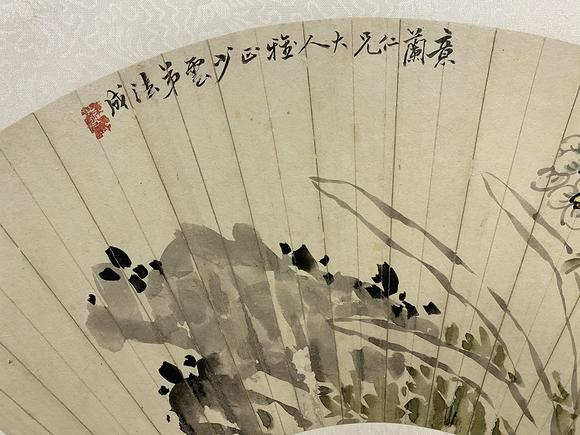 意蘭仁兄大人雅正少雲弟法成